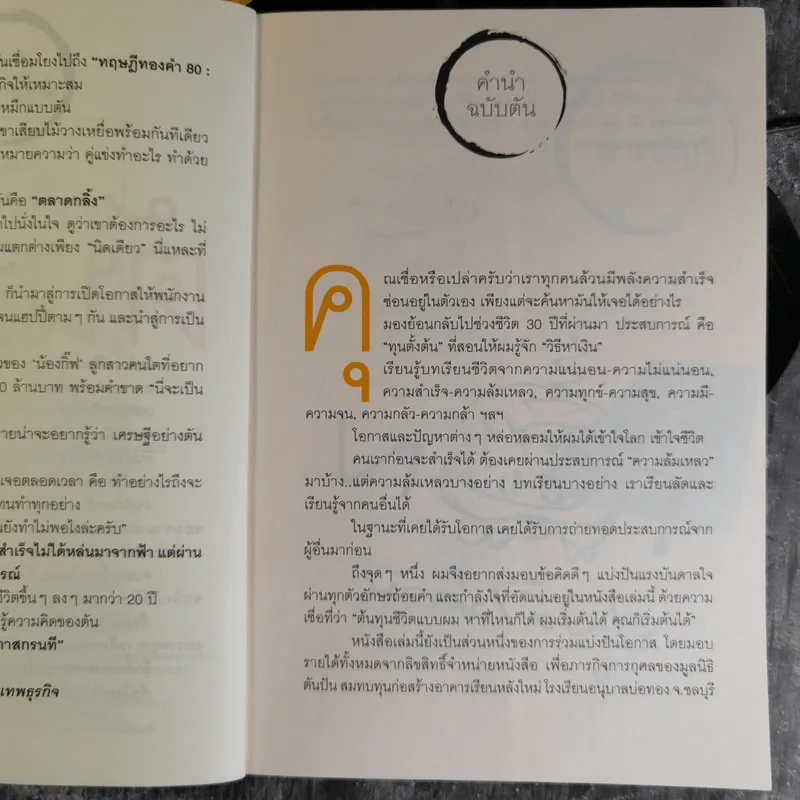 นเชื่อมโยงไปถึง "ทฤษฎีทองคำ 80 :
กิจให้เหมาะสม
หมึกแบบตัน
ขาเสียบไม้วางเหยื่อพร้อมกันทีเดียว
หมายความว่า คู่แข่งทำอะไร ทำด้วย
นคือ "ตลาดกลิ้ง"
ไปนั่งในใจ ดูว่าเขาต้องการอะไร ไม่
มแตกต่างเพียง "นิดเดียว" นี่แหละที่
ก็นำมาสู่การเปิดโอกาสให้พนักงาน
จนแฮปปี้ตามๆ กัน และนำสู่การเป็น
วของ "น้องกิ๊ฟ" ลูกสาวคนโตที่อยาก
0 ล้านบาท พร้อมคำขาด "นี่จะเป็น
ายน่าจะอยากรู้ว่า เศรษฐีอย่างตัน
เจอตลอดเวลา คือ ทำอย่างไรถึงจะ
ทนทำทุกอย่าง
นยังทำไม่พอไงล่ะครับ"
สำเร็จไม่ได้หล่นมาจากฟ้า แต่ผ่าน
รณ์
ชีวิตขึ้นๆ ลงๆ มากว่า 20 ปี
รู้ความคิดของตัน
าสกรนที"
เทพธุรกิจ
คำนำ
ฉบับตัน
คุณเชื่อหรือเปล่าครับว่าเราทุกคนล้วนมีพลังความสำเร็จ
ซ่อนอยู่ในตัวเอง เพียงแต่จะค้นหามันให้เจอได้อย่างไร
มองย้อนกลับไปช่วงชีวิต 30 ปีที่ผ่านมา ประสบการณ์ คือ
"ทุนตั้งต้น" ที่สอนให้ผมรู้จัก "วิธีหาเงิน"
เรียนรู้บทเรียนชีวิตจากความแน่นอน-ความไม่แน่นอน,
ความสำเร็จ-ความล้มเหลว, ความทุกข์-ความสุข, ความมี-
ความจน, ความกลัว-ความกล้า ฯลฯ
โอกาสและปัญหาต่างๆ หล่อหลอมให้ผมได้เข้าใจโลก เข้าใจชีวิต
คนเราก่อนจะสำเร็จได้ ต้องเคยผ่านประสบการณ์ "ความล้มเหลว"
มาบ้าง..แต่ความล้มเหลวบางอย่าง บทเรียนบางอย่าง เราเรียนลัดและ
เรียนรู้จากคนอื่นได้
ในฐานะที่เคยได้รับโอกาส เคยได้รับการถ่ายทอดประสบการณ์จาก
ผู้อื่นมาก่อน
ถึงจุดๆ หนึ่ง ผมจึงอยากส่งมอบข้อคิดดีๆ แบ่งปันแรงบันดาลใจ
ผ่านทุกตัวอักษรถ้อยคำ และกำลังใจที่อัดแน่นอยู่ในหนังสือเล่มนี้ ด้วยความ
เชื่อที่ว่า "ต้นทุนชีวิตแบบผม หาที่ไหนก็ได้ ผมเริ่มต้นได้ คุณก็เริ่มต้นได้"
หนังสือเล่มนี้ยังเป็นส่วนหนึ่งของการร่วมแบ่งปันโอกาส โดยมอบ
รายได้ทั้งหมดจากลิขสิทธิ์จำหน่ายหนังสือ เพื่อภารกิจการกุศลของมูลนิธิ
ตันปัน สมทบทุนก่อสร้างอาคารเรียนหลังใหม่ โรงเรียนอนุบาลบ่อทอง จ.ชลบุรี